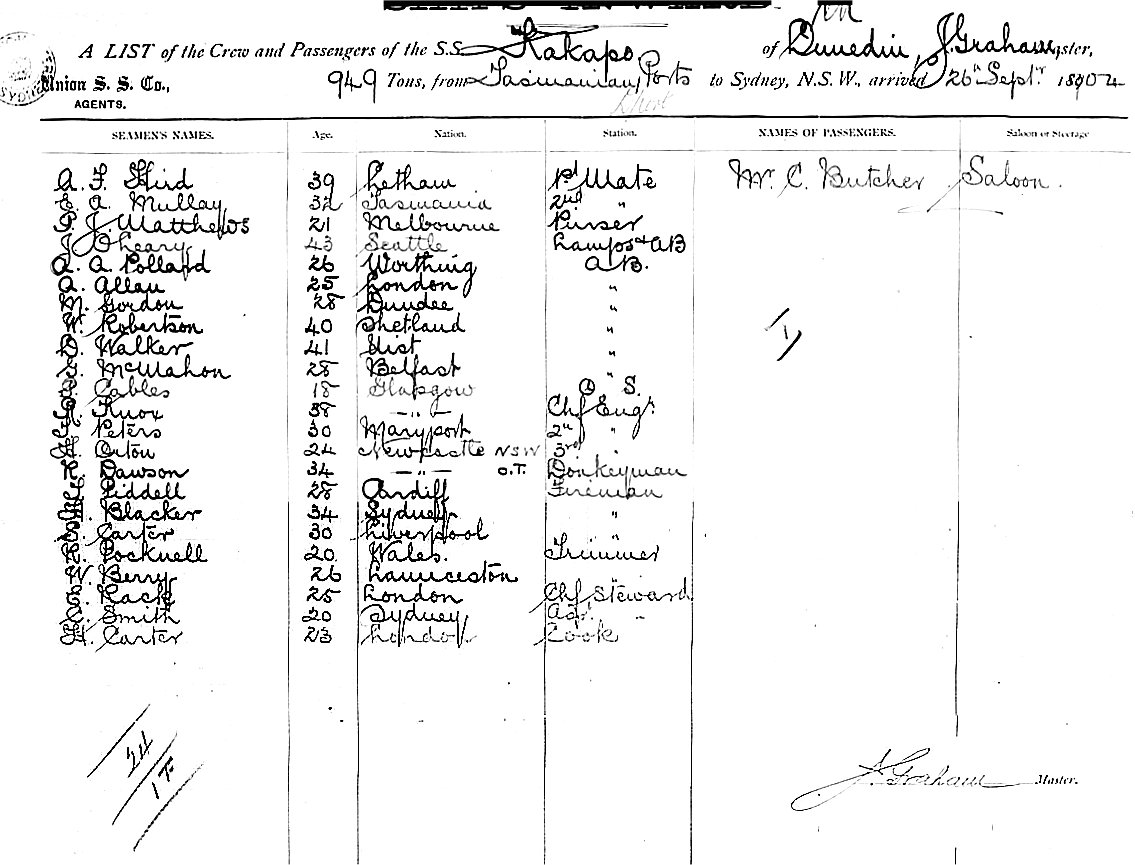 A LIST of the Crew and Passengers of the S.S. Kakapo of Dunedin, J. Graham, Master,
Union S. S. Co., 949 Tons, from Tasmanian Ports to Sydney, N.S.W., arrived 26th Septr 1904
AGENTS.
SEAMEN'S NAMES. Age. Nation. Station. NAMES OF PASSENGERS. Saloon or Steerage
A. F. Hird 39 Letham 1st Mate Mr. C. Butcher Saloon.
E. A. Mullay 32 Tasmania 2nd "
P. J. Matthews 21 Melbourne Purser
J. O'Leary 43 Seattle Lamps & AB
A. A. Pollard 26 Worthing A.B.
A. Allan 25 London "
M. Gordon 28 Dundee "
W. Robertson 40 Shetland "
D. Walker 41 Uist "
McMahon 28 Belfast "
Cables 18 Glasgow O S.
Knox 38 —"— Chf Engr
Peters 30 Maryport 2nd "
H. Orton 24 Newcastle NSW 3rd "
Dawson 34 —"— O.T. Donkeyman
Liddell 28 Cardiff Fireman
Blacker 34 Sydney "
Carter 30 Liverpool
Pocknell 20 Wales. Trimmer
W. Berry 26 Launceston "
Rack 25 London Chf Steward
Smith 20 Sydney Asst. "
H. Carter 23 London Cook
1
24
1 F
J. Graham Master.